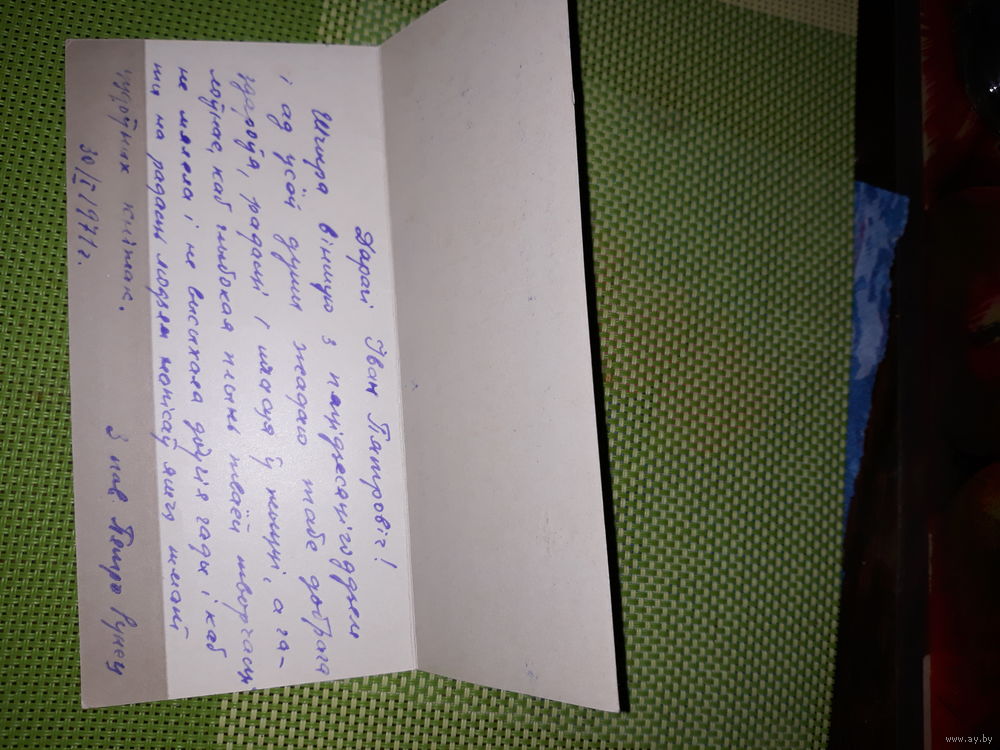 Дарагі Іван Пятровіч!
Шчыра віншую з пяцідзесяцігоддзем
і ад усёй душы жадаю табе добрага
здароўя, радасці і шчасця ў жыцці, а га-
лоўнае, каб глыбокая плынь тваёй творчасці
не мялела і не высыхала доўгія гады і каб
ты на радасць людзям напісаў яшчэ шмат
цудоўных кніжак.
З пав Пятро Рунец
30/I 1971 г.
www.ay.by